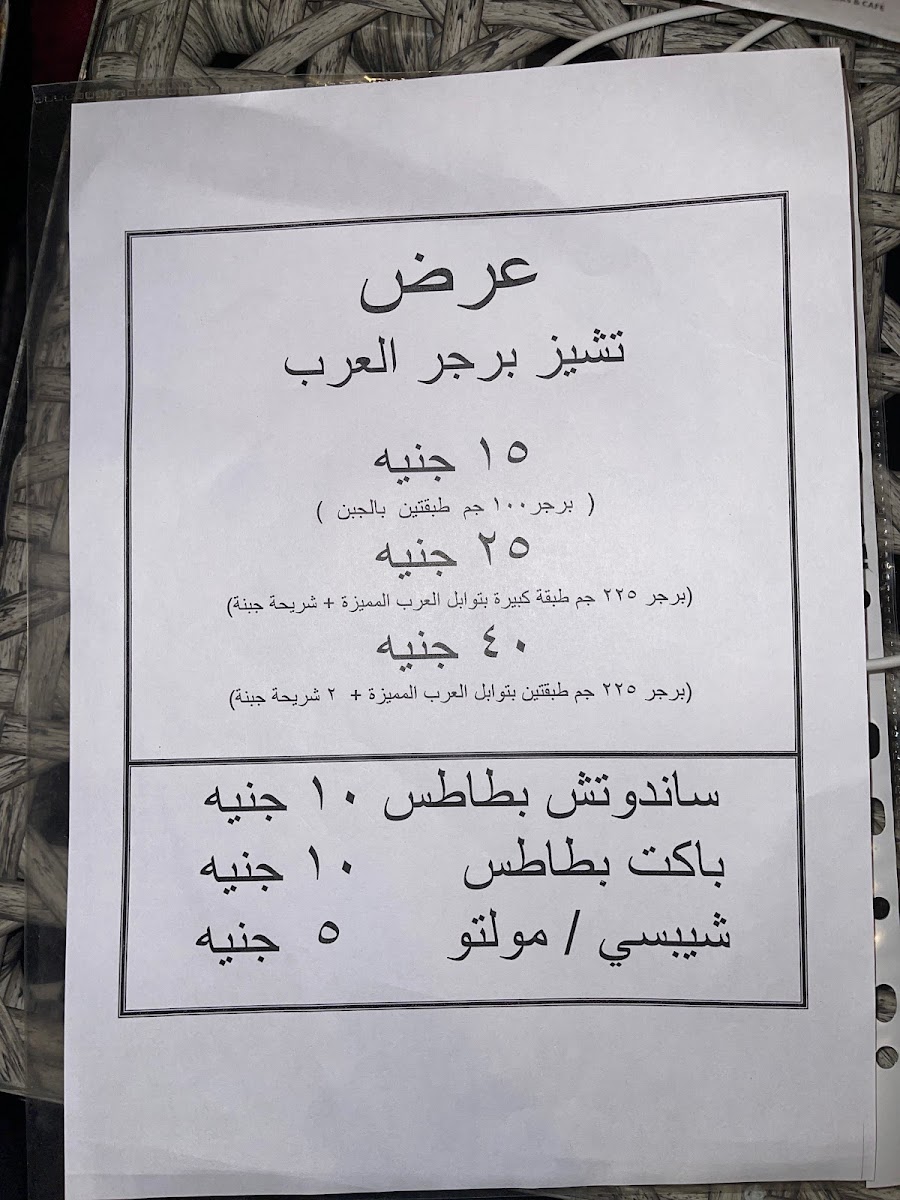 & CAFE
عرض
تشيز برجر العرب
١٥ جنيه
( برجر ١٠٠ جم طبقتين بالجبن )
٢٥ جنيه
(برجر ٢٢٥ جم طبقة كبيرة بتوابل العرب المميزة + شريحة جبنة)
٤٠ جنيه
(برجر ٢٢٥ جم طبقتين بتوابل العرب المميزة + ٢ شريحة جبنة)
ساندوتش بطاطس ١٠ جنيه
باكت بطاطس ١٠ جنيه
شيبسي / مولتو ٥ جنيه